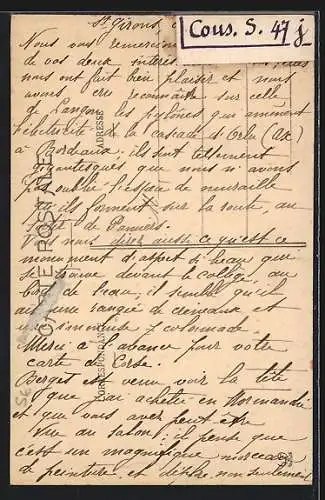 St Girons,
Cous. S. 47 j
Nous vous remercions
de vos deux intéres
nous ont fait bien plaisir et nous
avons cru reconnaître sur celle
de Langon les pylônes qui amènent
l'électricité de la cascade d'Orlu (Ax)
à Bordeaux ; ils sont tellement
gigantesques que nous n'avons
pas oublié l'espèce de muraille
qu'ils forment sur la route, au
de Pamiers.
nous direz aussi ce qu'est ce
monument d'aspect si beau que
se trouve devant le collège, au
bord de l'eau, il semble qu'il
ait une rangée de créneaux et
une immense colonnade.
Merci à l'avance pour votre
carte de Corse.
Berges est venu voir la tête
que j'ai achetée en Normandie
et que vous avez peut-être
vue au salon ; il pense que
c'est un magnifique morceau
de peinture et non seulement
CARTE POSTALE
CORRESPONDANCE
ADRESSE